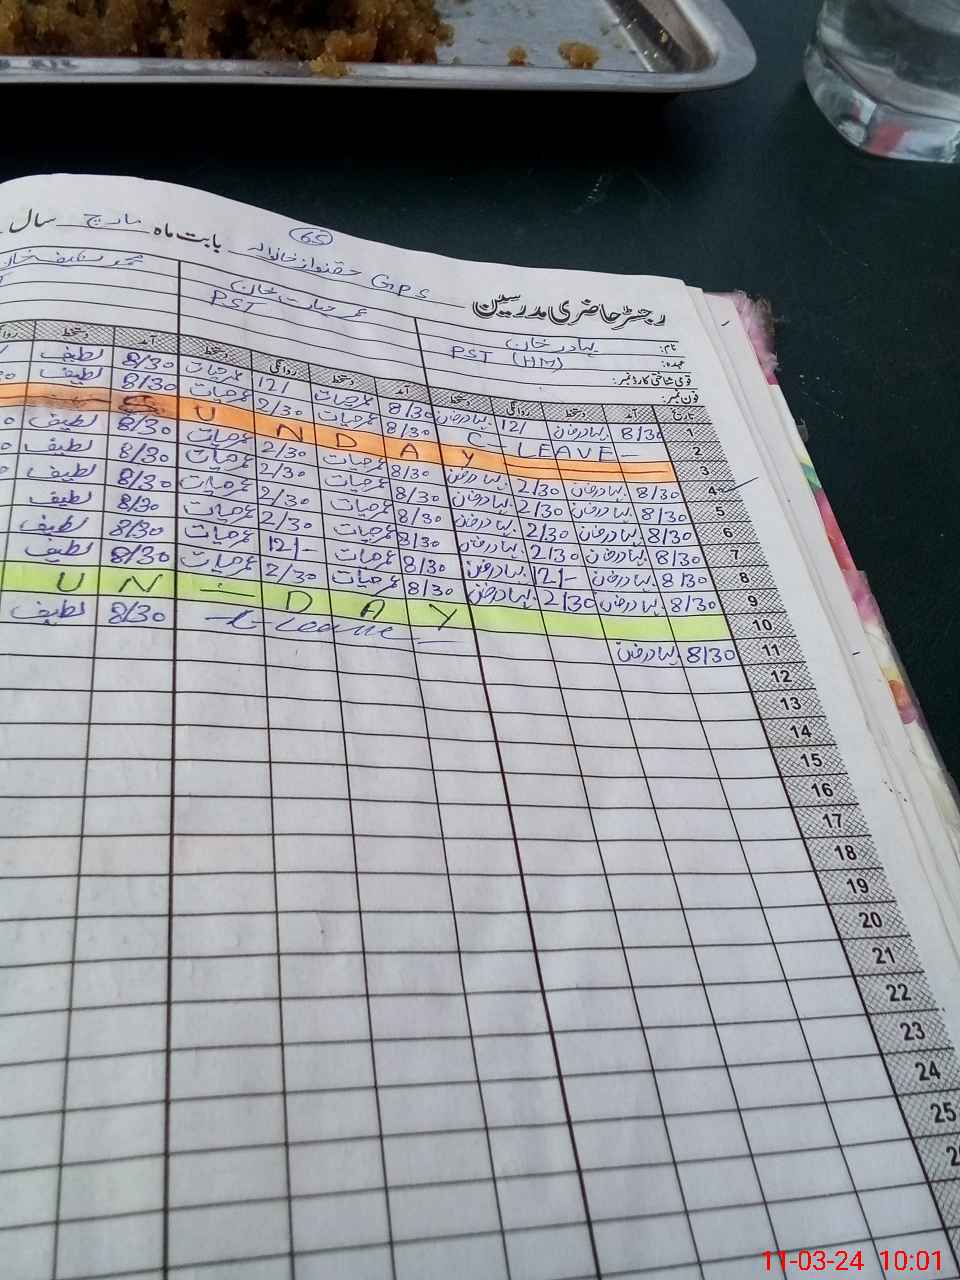 65
رجسٹر حاضری مدرسین GPS حقنواز خانوالہ بابت ماہ مارچ سال
نام: بہادر خان
عہدہ: PST (HM) PST
قومی شناختی کارڈ نمبر:
فون نمبر:
تاریخ آمد دستخط روانگی دستخط آمد دستخط روانگی دستخط آمد دستخط
1 8/30 بہادرخان 12/ بہادرخان 8/30 عمرحیات 12/ عمرحیات 8/30 لطیف
2 C-LEAVE- 8/30 عمرحیات 2/30 عمرحیات 8/30 لطیف
3 S U N D A Y
4 8/30 بہادرخان 2/30 بہادرخان 8/30 عمرحیات 2/30 عمرحیات 8/30 لطیف
5 8/30 بہادرخان 2/30 بہادرخان 8/30 عمرحیات 2/30 عمرحیات 8/30 لطیف
6 8/30 بہادرخان 2/30 بہادرخان 8/30 عمرحیات 2/30 عمرحیات 8/30 لطیف
7 8/30 بہادرخان 2/30 بہادرخان 8/30 عمرحیات 2/30 عمرحیات 8/30 لطیف
8 8/30 بہادرخان 12/- بہادرخان 8/30 عمرحیات 12/- عمرحیات 8/30 لطیف
9 8/30 بہادرخان 2/30 بہادرخان 8/30 عمرحیات 2/30 عمرحیات 8/30 لطیف
10 U N - D A Y
11 8/30 بہادرخان -C-Leave- 8/30 لطیف
12
13
14
15
16
17
18
19
20
21
22
23
24
25
11-03-24 10:01